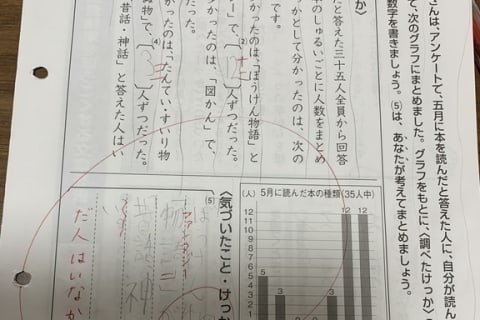 さんは、アンケートで、五月に本を読んだと答えた人に、自分が読ん
て、次のグラフにまとめました。グラフをもとに、〈調べたけっか〉
数字を書きましょう。(5)は、あなたが考えてまとめましょう。
か〉
だと答えた三十五人全員から回答
本のしゅるいごとに人数をまとめ
かとして分かったのは、次の
です。
かったのは、「ぼうけん物語」と
ー」で、
(2)
十二
人ずつだった。
かったのは、「図かん」で、
だった。
かったのは、「たんてい・すいり物
物」で、
(4)
三
人ずつだった。
昔話・神話」と答えた人はい
5月に読んだ本の種類(35人中)
(人)
12
11
10
9
8
7
6
5
4
3
2
1
5
3
3
12
12
〈気づいたこと・けっ
(5)
だ人はいなか